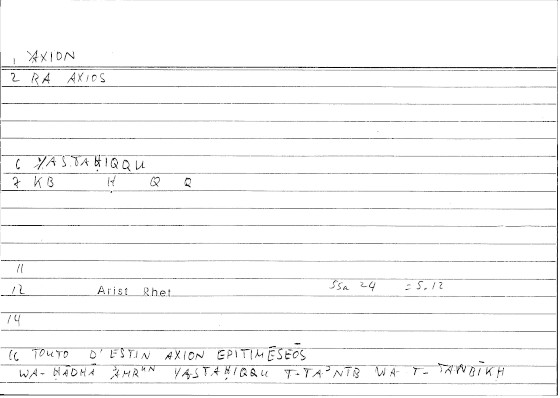 1 AXION
2 RA AXIOS
6 YASTAḤIQQU
7 KB Ḥ Q Q
11
12 Arist Rhet 55a 24 = 5.12
14
16 TOUTO D'ESTIN AXION EPITIMĒSEŌS
WA-HĀDHĀ AMRUN YASTAḤIQQU T-TAʾNĪB WA T-TAWBĪKH